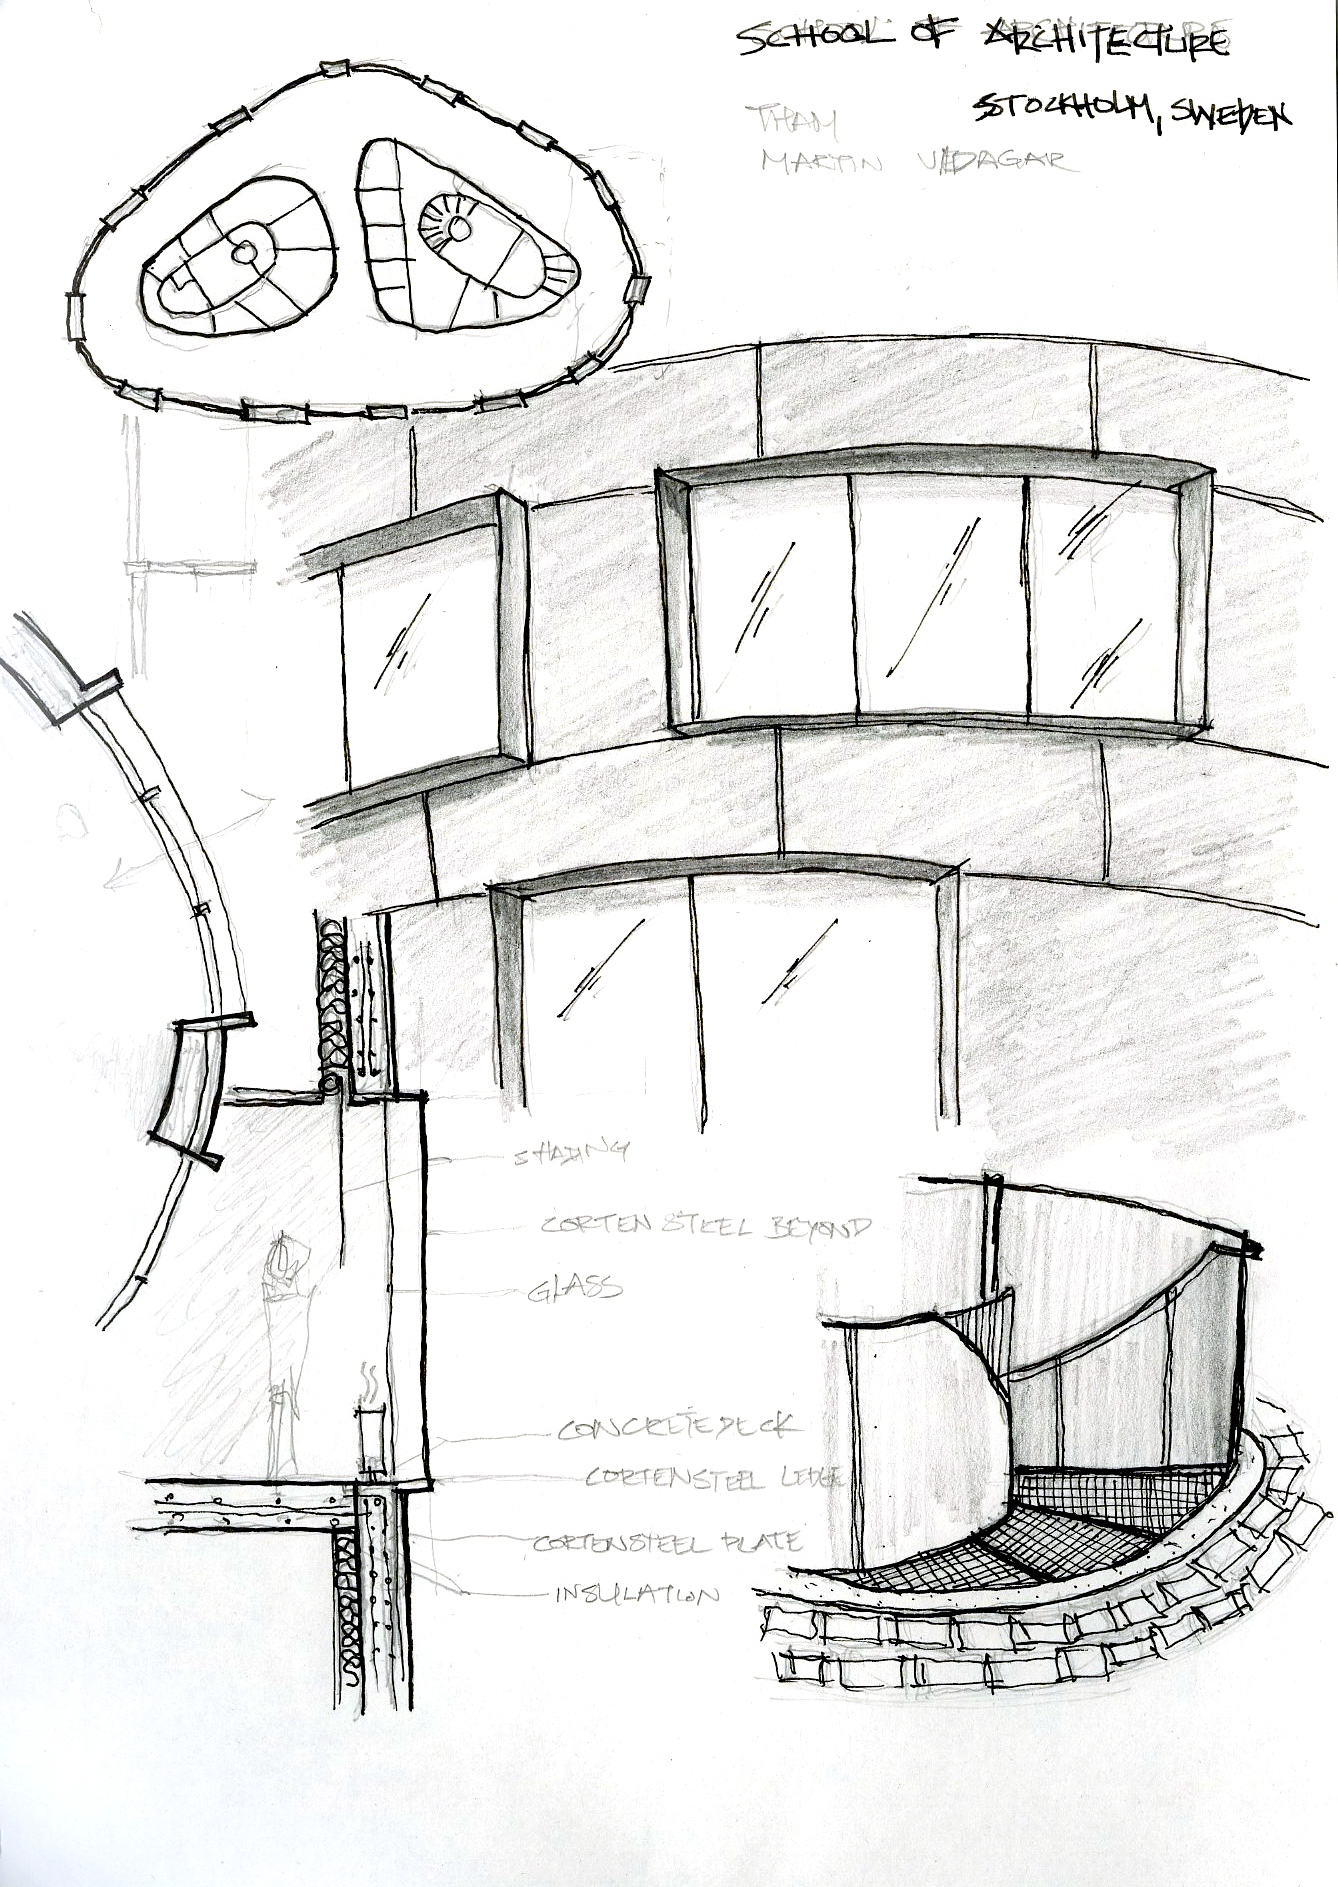 SCHOOL OF ARCHITECTURE
STOCKHOLM, SWEDEN
THAM
MARTIN VIDAGAR
SHADING
CORTEN STEEL BEYOND
GLASS
CONCRETE DECK
CORTEN STEEL LEDGE
CORTEN STEEL PLATE
INSULATION